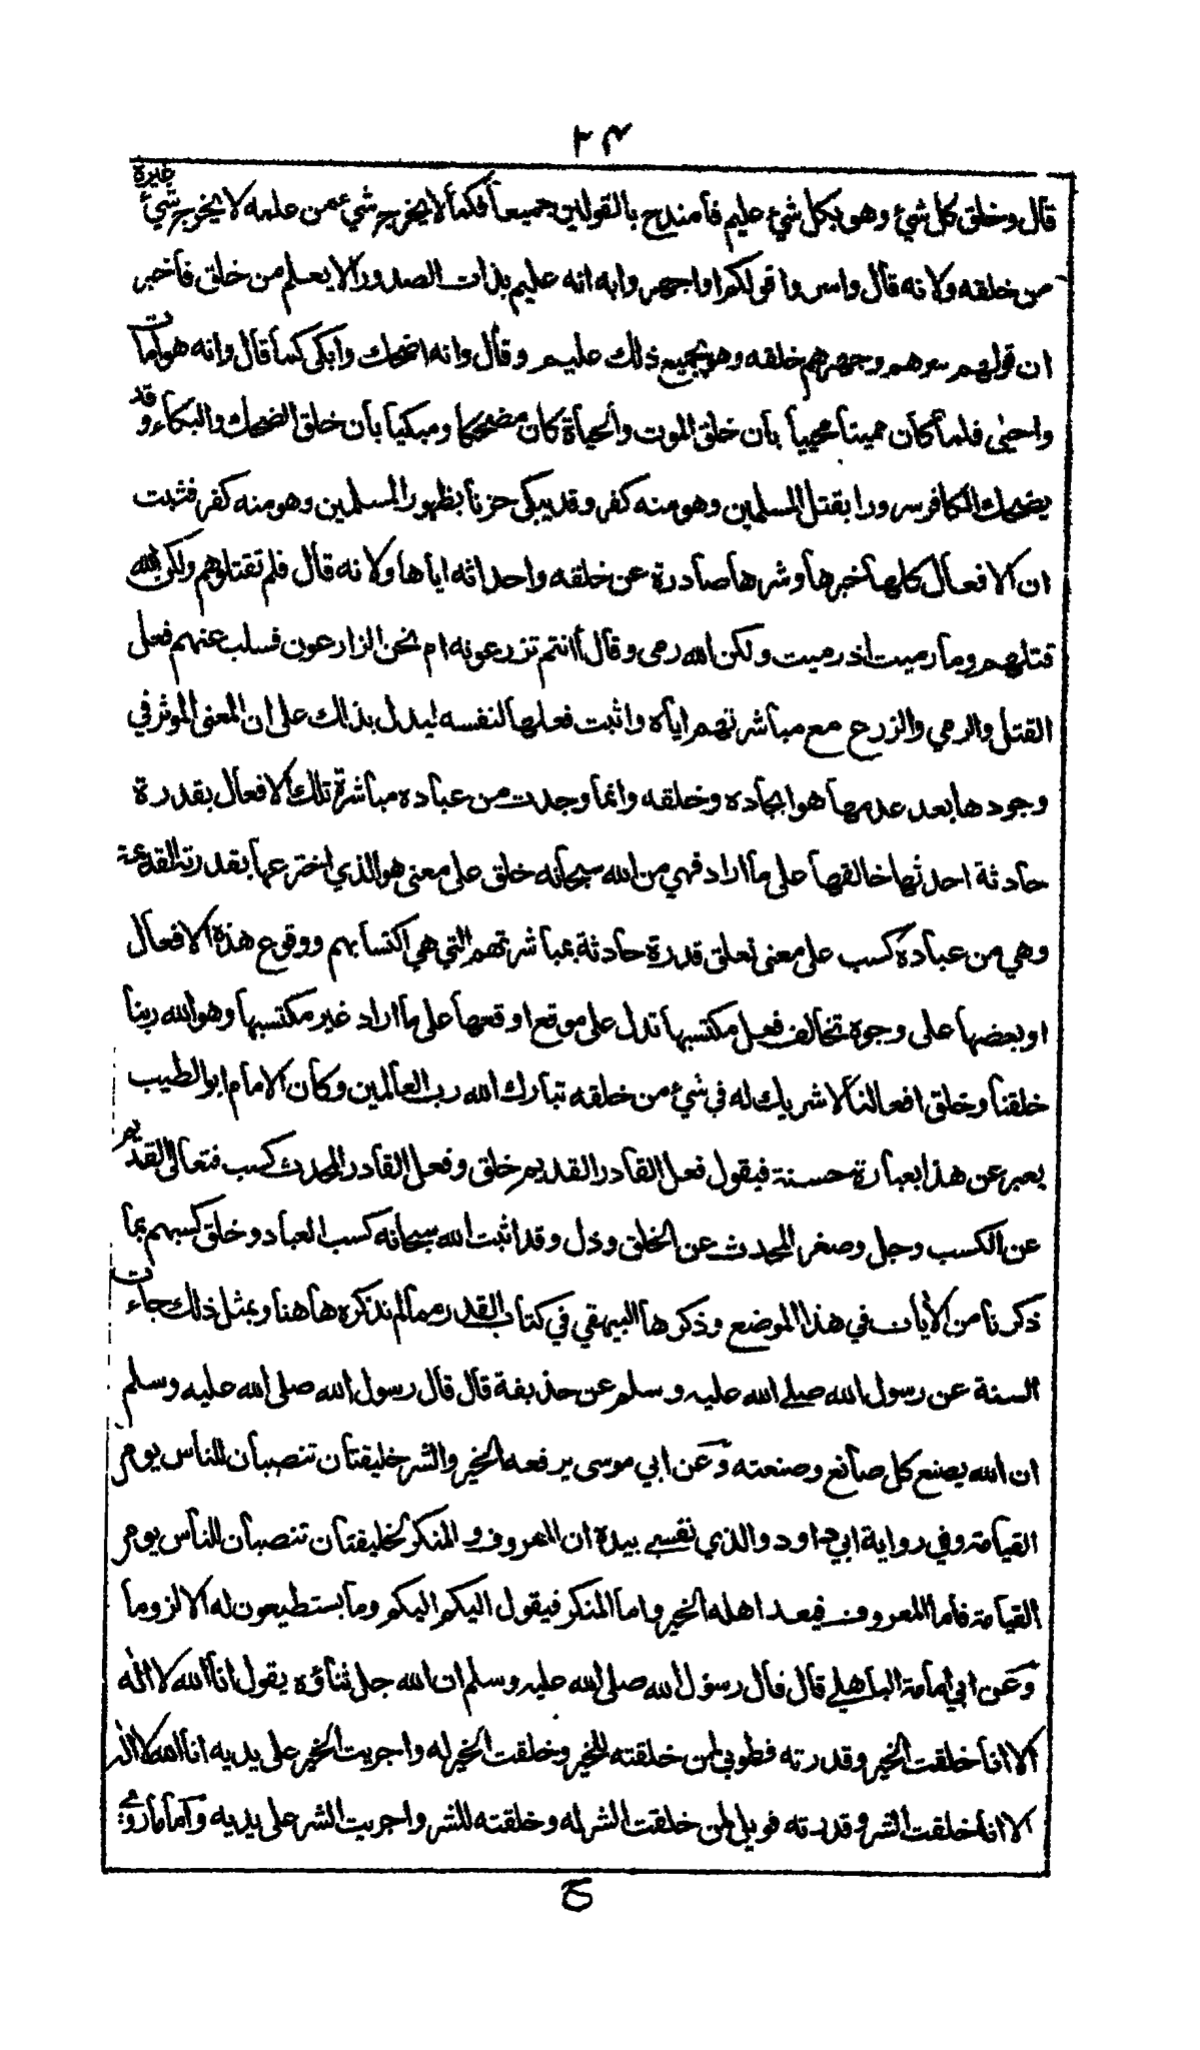 ٢٤
قال وخلق كل شئ وهو بكل شئ عليم فامتدح بالقولين جميعا فكما لا يخرج شئ عن علمه لا يخرج شئ غيره
من خلقه ولانه قال واسروا قولكم او اجهروا به انه عليم بذات الصدور الا يعلم من خلق فاخبر
ان قولهم سرهم وجهرهم خلقه وهو بجميع ذلك عليم وقال وانه اضحك وابكى كما قال وانه هو امات
واحيى فلما كان مميتا محييا بان خلق الموت والحياة كان مضحكا ومبكيا بان خلق الضحك والبكاء وقد
يضحك الكافر سرورا بقتل المسلمين وهو منه كفر وقد يبكى حزنا بظهور المسلمين وهو منه كفر فثبت
ان الافعال كلها خيرها وشرها صادرة عن خلقه واحداثه اياها ولانه قال فلم تقتلوهم ولكن الله
قتلهم وما رميت اذ رميت ولكن الله رمى وقال أانتم تزرعونه ام نحن الزارعون فسلب عنهم فعل
القتل والرمي والزرع مع مباشرتهم اياه واثبت فعلها لنفسه ليدل بذلك على ان المعنى الموثر في
وجودها بعد عدمها هو ايجاده وخلقه وانما وجدت من عباده مباشرة تلك الافعال بقدرة
حادثة احدثها خالقها على ما اراد فهي من الله سبحانه خلق على معنى هو الذي اخترعها بقدرته القديمة
وهي من عباده كسب على معنى تعلق قدرة حادثة بمباشرتهم التي هي اكتسابهم ووقوع هذه الافعال
او بعضها على وجوه تخالف فعل مكتسبها تدل على موقع اوقعها على ما اراد غير مكتسبها وهو الله ربنا
خلقنا وخلق افعالنا لا شريك له في شئ من خلقه تبارك الله رب العالمين وكان الامام ابو الطيب
يعبر عن هذا بعبارة حسنة فيقول فعل القادر القديم خلق وفعل القادر المحدث كسب فتعالى القديم
عن الكسب وجل وصغر المحدث عن الخلق وذل وقد اثبت الله سبحانه كسب العباد وخلق كسبهم بما
ذكرنا من الأيات في هذا الموضع وذكرها البيهقي في كتاب القدر مما لم نذكره هاهنا وبمثل ذلك جاءت
السنة عن رسول الله صلى الله عليه وسلم عن حذيفة قال قال رسول الله صلى الله عليه وسلم
ان الله يصنع كل صانع وصنعته وعن ابي موسى يرفعه الخير والشر خليقتان تنصبان للناس يوم
القيامة وفي رواية ابي داود والذي نفسي بيده ان المعروف و المنكر لخليفتان تنصبان للناس يوم
القيامة فاما المعروف فيعد اهله الخير واما المنكر فيقول اليكم اليكم وما يستطيعون له الا لزوما
وعن ابي امامة الباهلي قال قال رسول الله صلى الله عليه وسلم ان الله جل ثناؤه يقول انا الله لا اله
الا انا خلقت الخير وقدرته فطوبى لمن خلقته للخير وخلقت الخير له واجريت الخير على يديه انا الله لا اله
الا انا خلقت الشر وقدرته فويل لمن خلقت الشر له وخلقته للشر واجريت الشر على يديه واما ما روى